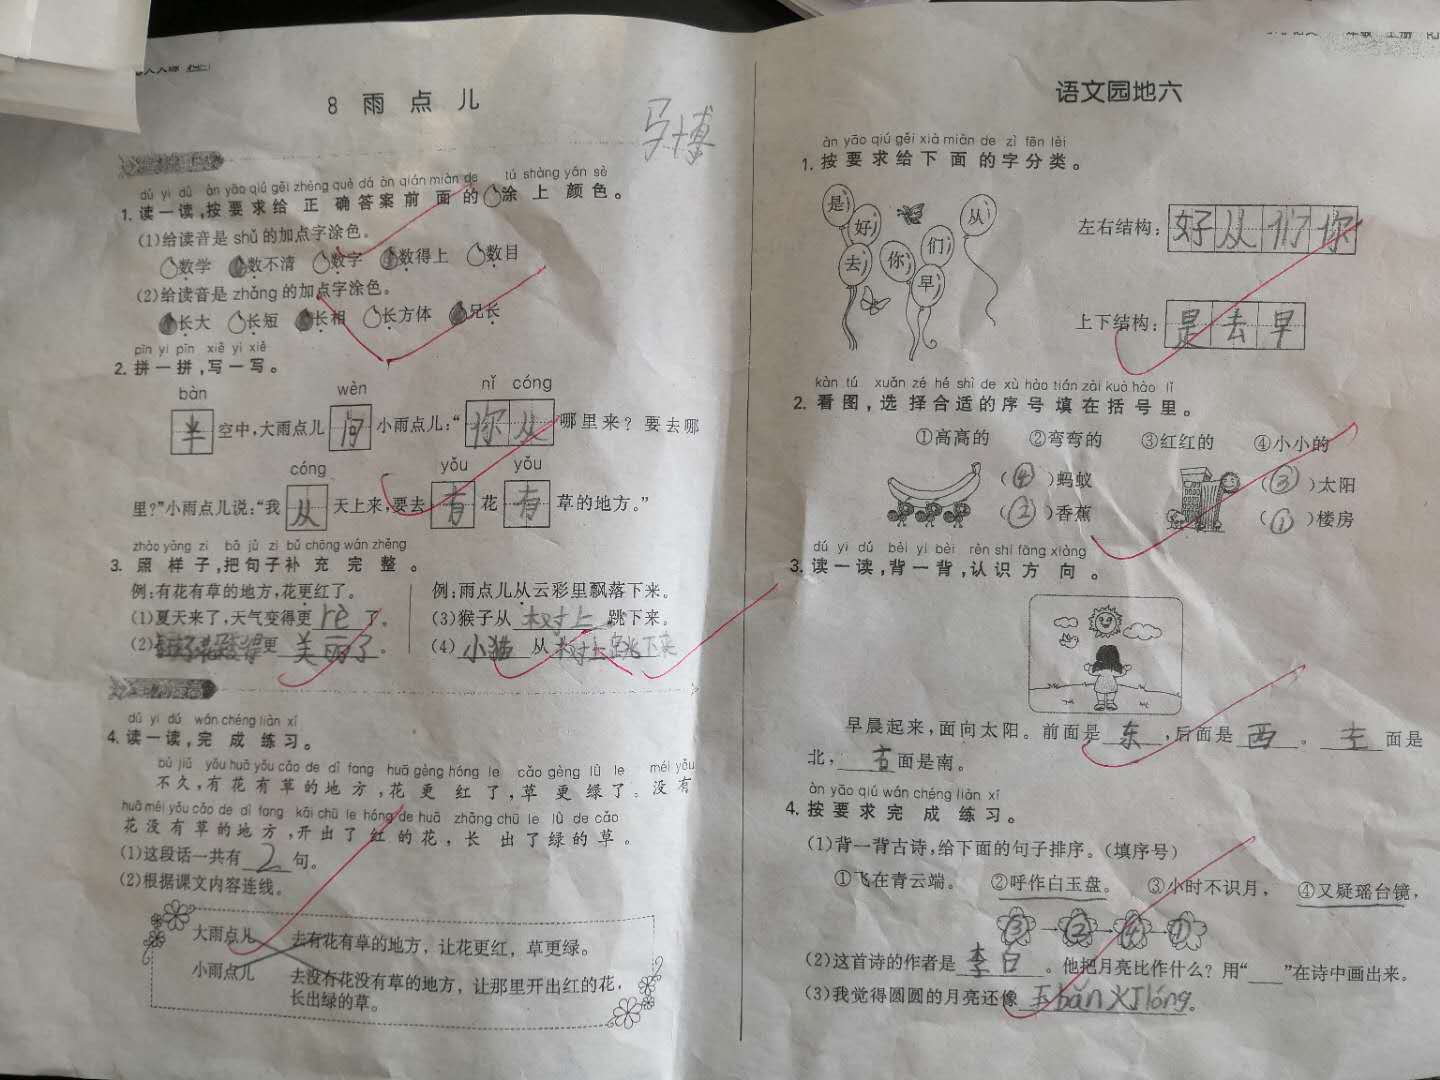 8 雨点儿
马博
dú yi dú àn yāo qiú gěi zhèng què dá àn qián miàn de tú shàng yán sè
1. 读一读,按要求给正确答案前面的涂上颜色。
(1)给读音是 shǔ 的加点字涂色。
数学 数不清 数字 数得上 数目
(2)给读音是 zhǎng 的加点字涂色。
长大 长短 长相 长方体 兄长
pīn yi pīn xiě yi xiě
2. 拼一拼,写一写。
bàn wèn nǐ cóng
半空中,大雨点儿问小雨点儿:“你从哪里来?要去哪
cóng yǒu yǒu
里?”小雨点儿说:“我从天上来,要去有花有草的地方。”
zhào yàng zi bǎ jù zi bǔ chōng wán zhěng
3. 照样子,把句子补充完整。
例:有花有草的地方,花更红了。
(1)夏天来了,天气变得更 rè 了。
(2) 更 美丽了。
例:雨点儿从云彩里飘落下来。
(3)猴子从 树上 跳下来。
(4) 小猫 从 树上跳下来
dú yi dú wán chéng liàn xí
4. 读一读,完成练习。
bù jiǔ yǒu huā yǒu cǎo de dì fang huā gèng hóng le cǎo gèng lǜ le méi yǒu
不久,有花有草的地方,花更红了,草更绿了。没有
huā méi yǒu cǎo de dì fang kāi chū le hóng de huā zhǎng chū le lǜ de cǎo
花没有草的地方,开出了红的花,长出了绿的草。
(1)这段话一共有 2 句。
(2)根据课文内容连线。
大雨点儿 去有花有草的地方,让花更红,草更绿。
小雨点儿 去没有花没有草的地方,让那里开出红的花,
长出绿的草。
语文园地六
àn yāo qiú gěi xià miàn de zì fēn lèi
1. 按要求给下面的字分类。
是 好 去 你 们 早 从
左右结构: 好 从 们 你
上下结构: 是 去 早
kàn tú xuǎn zé hé shì de xù hào tián zài kuò hào lǐ
2. 看图,选择合适的序号填在括号里。
①高高的 ②弯弯的 ③红红的 ④小小的
(④)蚂蚁 (③)太阳
(②)香蕉 (①)楼房
dú yi dú bèi yi bèi rèn shi fāng xiàng
3. 读一读,背一背,认识方向。
早晨起来,面向太阳。前面是 东 ,后面是 西 。 左 面是
北, 右 面是南。
àn yāo qiú wán chéng liàn xí
4. 按要求完成练习。
(1)背一背古诗,给下面的句子排序。(填序号)
①飞在青云端。 ②呼作白玉盘。 ③小时不识月, ④又疑瑶台镜,
③→②→④→①
(2)这首诗的作者是 李白 。他把月亮比作什么?用“___”在诗中画出来。
(3)我觉得圆圆的月亮还像 。